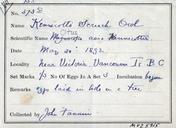 No. 573 c
Name Kennicotts Screech Owl
Otus
Scientific Name Megascops asio Kennicottii
Date May 20th 1892
Locality Near Victoria Vancouver Is. B.C.
Set Marks No. Of Eggs In A Set Incubation begun
Remarks eggs laid in hole in a tree
Collected by John Fannin
MVZ 5915